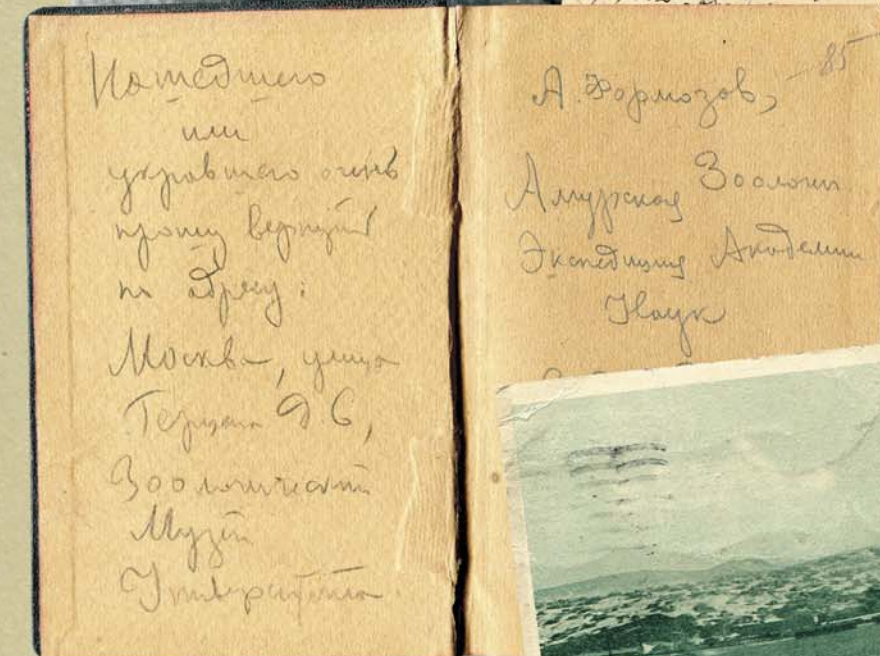 Нашедшего
или
укравшего очень
прошу вернуть
по адресу:
Москва, улица
Герцена д 6,
Зоологический
Музей
Университета.
А. Формозов, – 85
Амурская Зоологич.
Экспедиция Академии
Наук